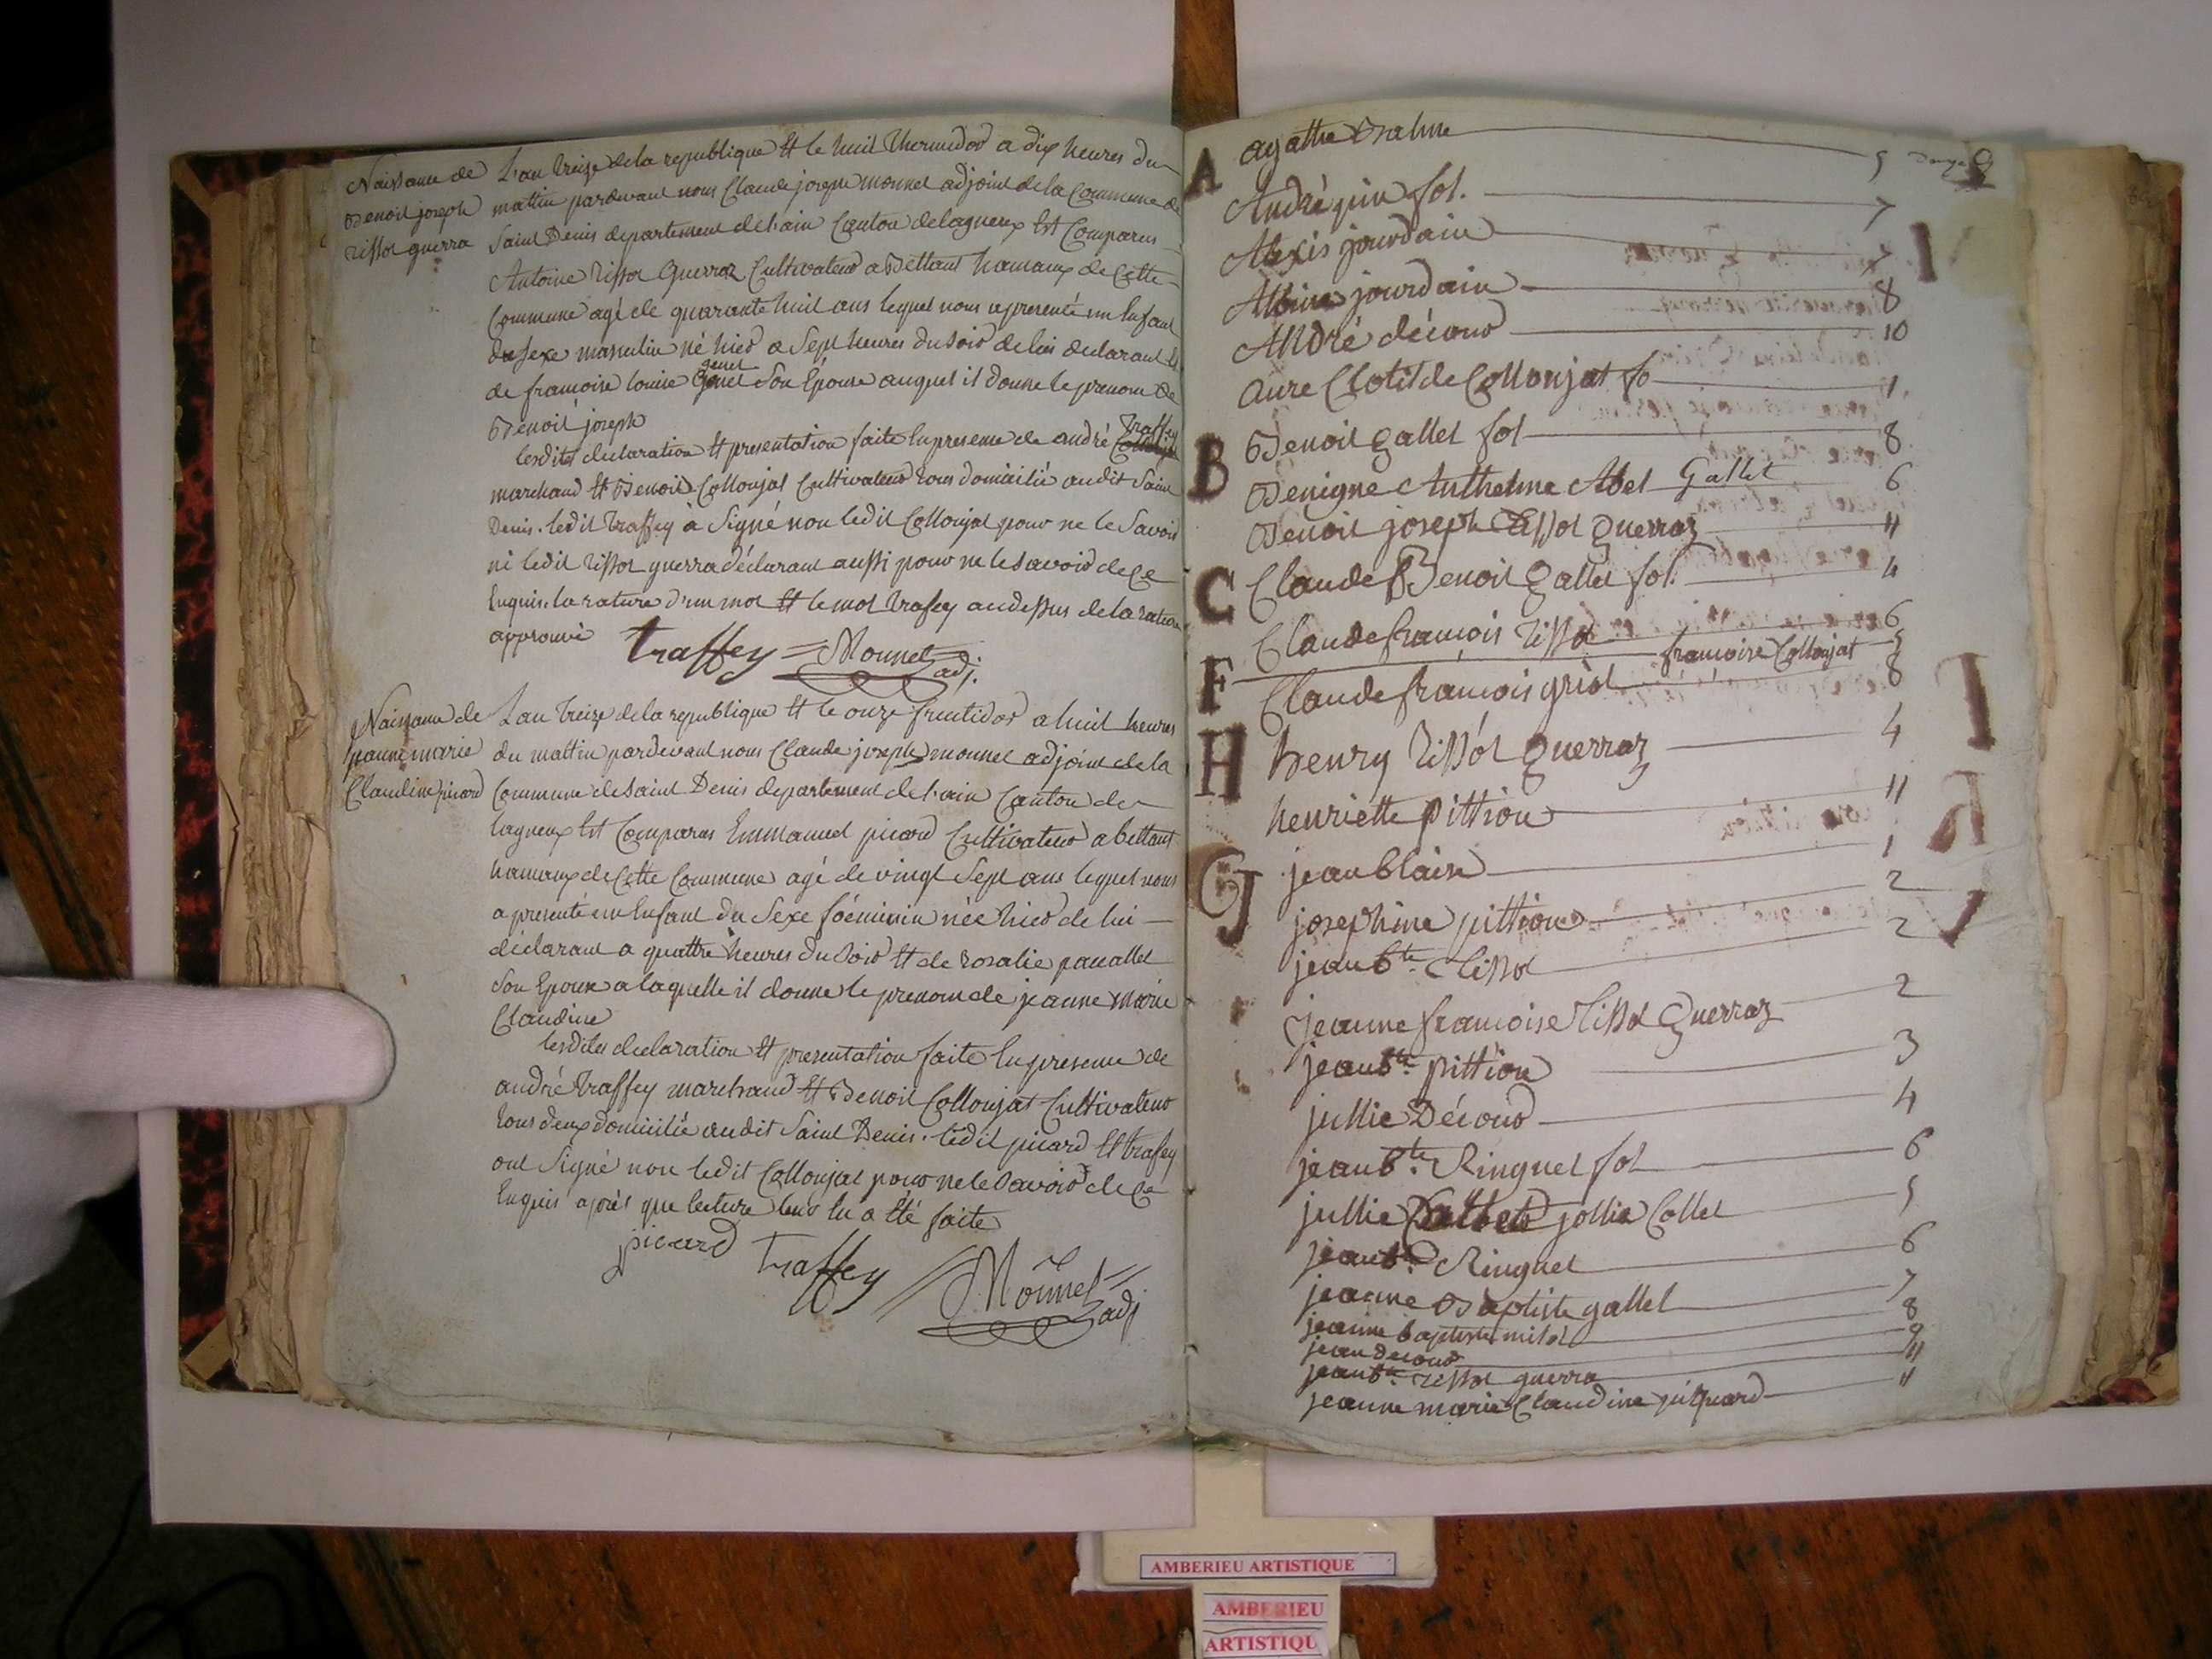 Naissance de
Benoit joseph
tissot guerra
L'an treize de la republique Et le huit thermidor a dix heures du
mattin pardevant nous Claude joseph monnet adjoint de la Commune de
Saint Denis departement de l'ain Canton de lagneux Est Comparus
Antoine tissot Guerraz Cultivateur a Bettant hamaux de Cette
Commune agé de quarante huit ans lequel nous a presenté un Enfant
du sexe masculin né hier a Sept heures du soir de lui declarant Et
de francoise louise genet Son Epouse auquel il donne le prenom de
Benoit joseph
lesdites declaration Et presentation faite En presence de andré traffey
marchand Et Benoit Collonjat Cultivateur tous domicilié audit Saint
Denis. ledit traffey a Signé non ledit Collonjat pour ne le Savoir
ni ledit tissot guerra déclarant aussi pour ne le savoir de Ce
Enquis. la rature d'un mot Et le mot trafey au dessus de la rature
approuvé traffey = Monnet adj.
Naissance de
jeanne marie
Claudine picard
L'an treize de la republique Et le onze fructidor a huit heures
du mattin pardevant nous Claude joseph monnet adjoint de la
Commune de Saint Denis departement de l'ain Canton de
lagneux Est Comparus Emmanuel picard Cultivateur a bettant
hamaux de Cette Commune agé de vingt Sept ans lequel nous
a presenté un Enfant du Sexe foéminin née hier de lui
déclarant a quattre heures du Soir Et de rosalie
Son Epouse a laquelle il donne le prenom de jeanne marie
Claudine
lesdites declaration Et presentation faite En presence de
andré traffey marchand Et Benoit Collonjat Cultivateur
tous deux domicilié audit Saint Denis. ledit picard Et trafey
ont Signé non ledit Collonjat pour ne le Savoir de Ce
Enquis après que lecture leur En a Eté faite
picard traffey Monnet adj
A agathe Brahme 5
André juin fol. 7
Alexis jourdain 7
jourdain 8
André décour 10
aure Clotilde Collonjat fo 1
B Benoit gallet fol 8
Benigne Anthelme Abel Gallet 6
Benoit joseph tissot guerraz 11
C Claude Benoit gallet fol. 4
Claude francois tissot 6
F francoise Collonjat 5
Claude francois griot 8
H henry tissot guerraz 4
henriette pittion 11
J jean blaise 1
josephine pittion 2
jean bte. tissot 2
jeanne francoise tissot Guerraz 2
jean bte. pittion 3
jullie Décour 4
jean bte. Ringuet fol 6
jullie jollie Collet 5
jean bte. Ringuet 6
jeanne Baptiste gallet 7
jeanne baptiste milot 8
jean decour 9
jean bte. tissot guerra 11
jeanne marie Claudine picquard 11
AMBERIEU ARTISTIQUE
AMBERIEU
ARTISTIQU